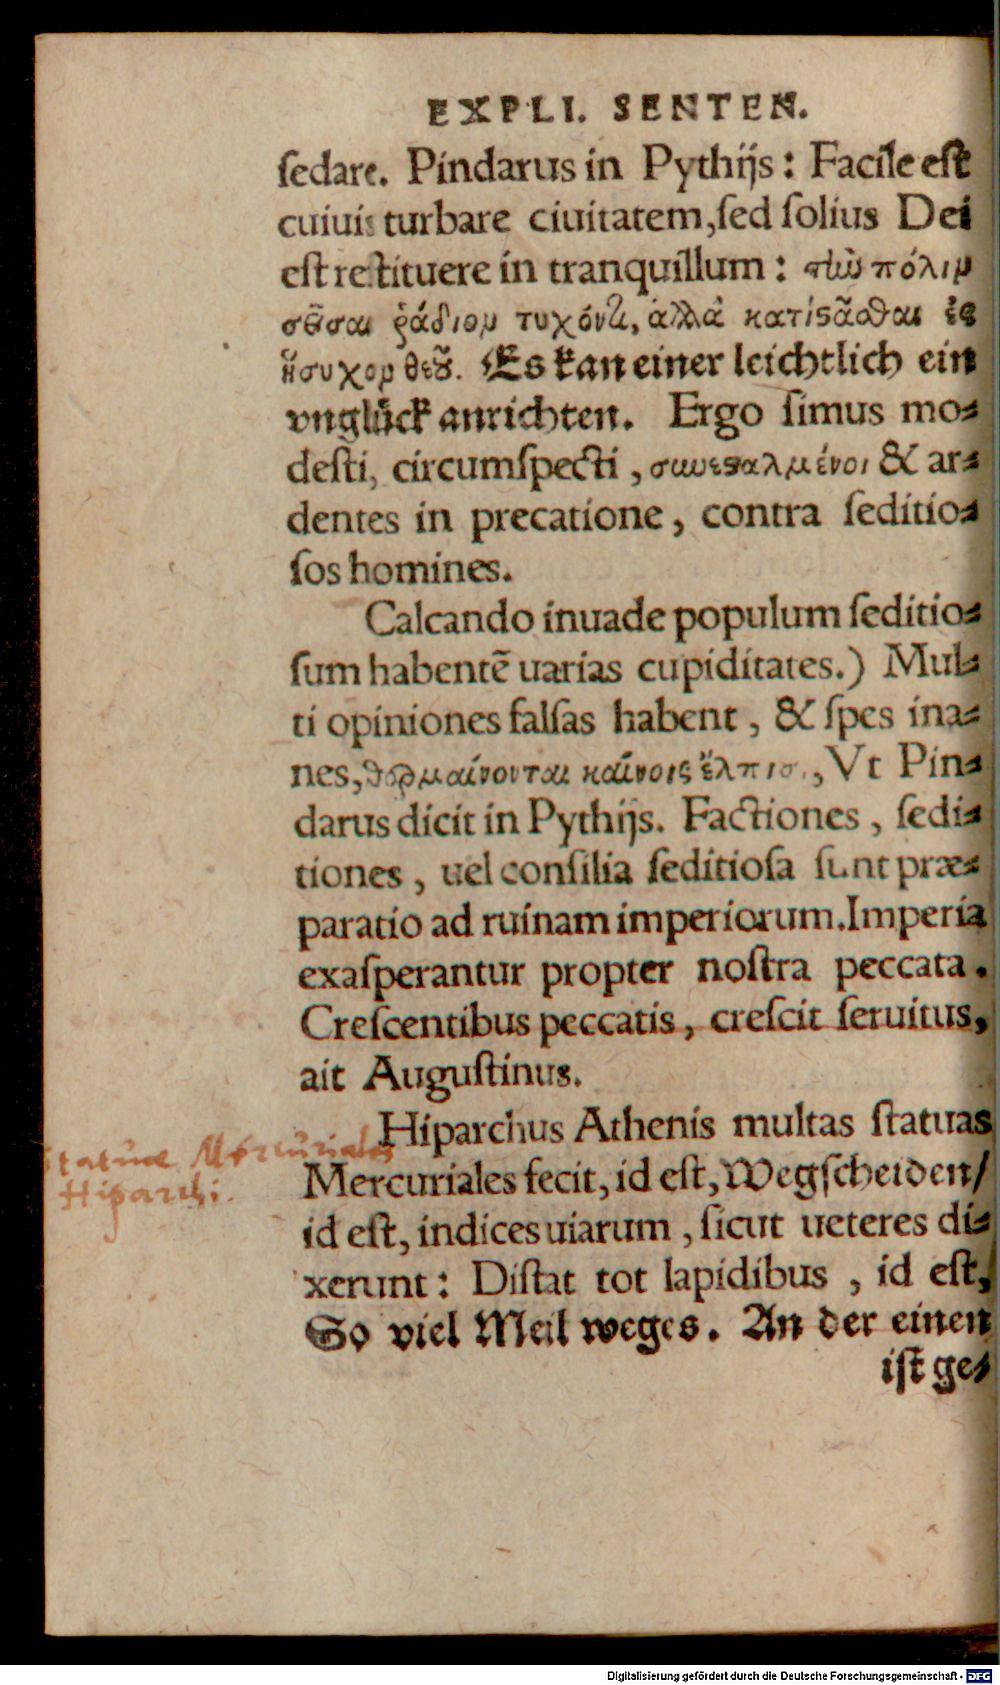 EXPLI. SENTEN.
ſedare. Pindarus in Pythijs: Facile eſt
cuiuis turbare ciuitatem, ſed ſolius Dei
eſt reſtituere in tranquillum: τὴν πόλιν
σεῖσαι ῥάδιον τυχόντι, ἀλλὰ κατίςαᾶσθαι ἐς
ἥσυχον θεοῦ. Es kan einer leichtlich ein
vnglück anrichten. Ergo ſimus mo⸗
deſti, circumſpecti, συνεςαλμένοι & ar⸗
dentes in precatione, contra ſeditio⸗
ſos homines.
Calcando inuade populum ſeditio⸗
ſum habentē uarias cupiditates.) Mul⸗
ti opiniones falſas habent, & ſpes ina⸗
nes, θερμαίνονται καίνοις ἔλπισι, Vt Pin⸗
darus dicit in Pythijs. Factiones, ſedi⸗
tiones, uel conſilia ſeditioſa ſunt præ⸗
paratio ad ruinam imperiorum. Imperia
exaſperantur propter noſtra peccata.
Creſcentibus peccatis, creſcit ſeruitus,
ait Auguſtinus.
Hiparchus Athenis multas ſtatuas
Statuæ Mercuriales
Hiparchi.
Mercuriales fecit, id eſt, Wegſcheiden/
id eſt, indices uiarum, ſicut ueteres di⸗
xerunt: Diſtat tot lapidibus, id eſt,
So viel Meil weges. An der einen
iſt ge⸗
Digitalisierung gefördert durch die Deutsche Forschungsgemeinschaft - DFG